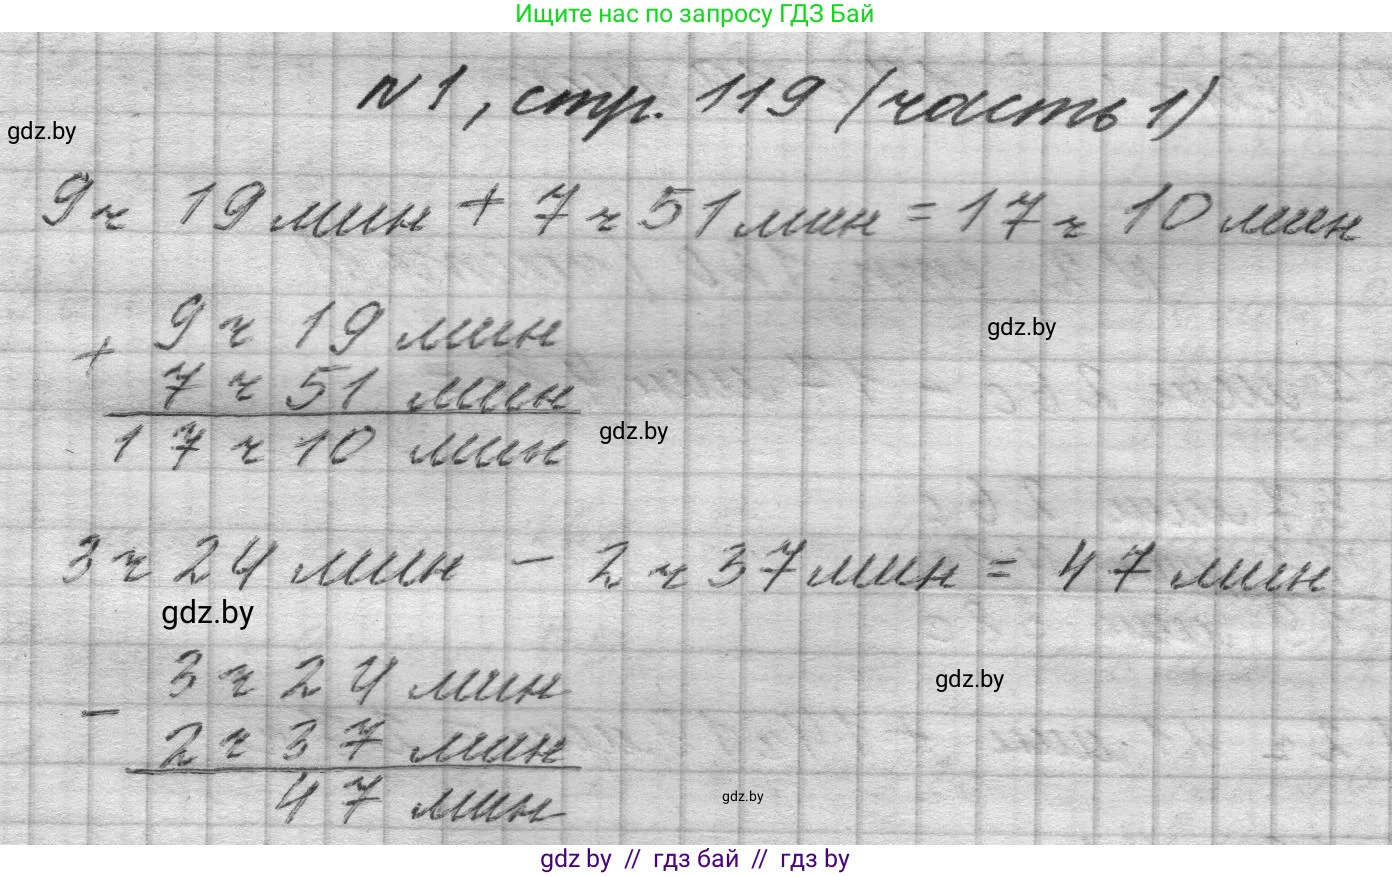 Ищите нас по запросу ГДЗ Бай
N 1, стр. 119 (часть 1)
gdz.by
9 ч 19 мин + 7 ч 51 мин = 17 ч 10 мин
+ 9 ч 19 мин
gdz.by
7 ч 51 мин
17 ч 10 мин
gdz.by
3 ч 24 мин - 2 ч 37 мин = 47 мин
gdz.by
- 3 ч 24 мин
gdz.by
2 ч 37 мин
47 мин
gdz.by
gdz by // гдз бай // гдз by